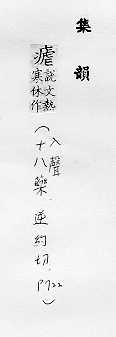 集韻
瘧說文熱寒休作(入聲十八藥.逆約切.P722)